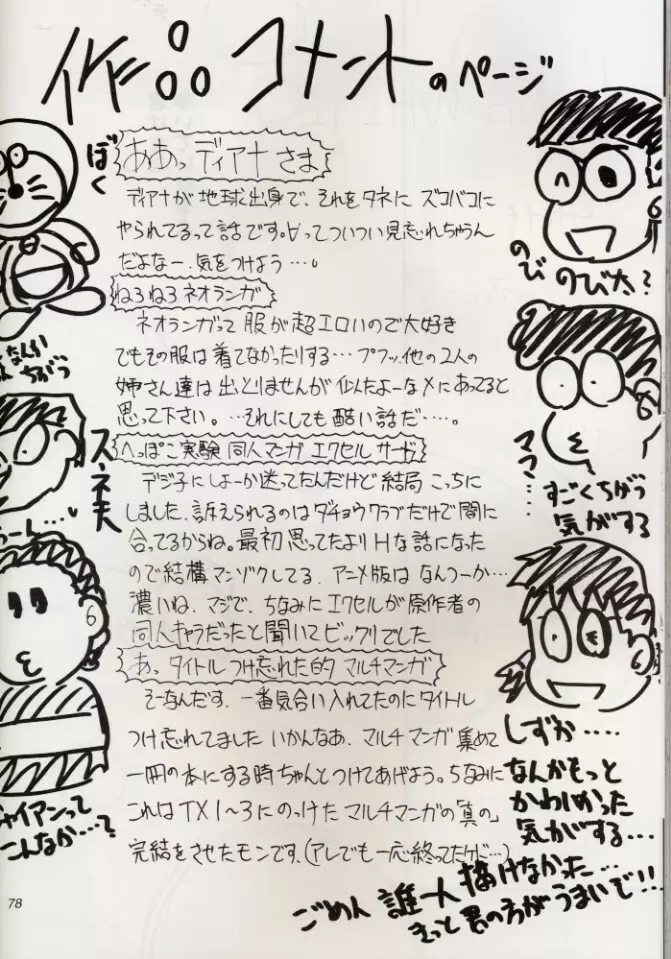 作品コメントのページ
ああっディアナさま
ディアナが地球出身で、それをタネにズコバコに
やられてるって話です。∀ってついつい見忘れちゃうん
だよなー、気をつけよう…。
ねろねろネオランガ
ネオランガって服が超エロいので大好き
でもその服は着てなかったりする…プフッ、他の2人の
姉さん達は出とりませんが似たよーなメにあってると
思って下さい。…それにしても酷い話だ…。
へっぽこ実験同人マンガ エクセルサーガ
デジ子にしよーか迷ってたんだけど結局こっちに
しました、訴えられるのはダチョウクラブだけで間に
合ってるからね。最初思ってたよりHな話になった
ので結構マンゾクしてる、アニメ版はなんつーか…
濃いね、マジで、ちなみにエクセルが原作者の
同人キャラだったと聞いてビックリでした
あ、タイトルつけ忘れた的マルチマンガ
そーなんだす、一番気合い入れてたのにタイトル
つけ忘れてました いかんなあ、マルチマンガ集めて
一冊の本にする時ちゃんとつけてあげよう。ちなみに
これはTX1〜3にのっけたマルチマンガの「真の」
完結をさせたモンです、(アレでも一応終ってたけど…)
ぼく
なんか
ちがう
スネ夫
うーん…、
ジャイアンって
こんなか…?
のび のび太?
ママ…
すごくちがう
気がする
しずか….
なんかもっと
かわいかった
気がする…
ごめん 誰一人描けなかった…
きっと君の方がうまいで!!
78